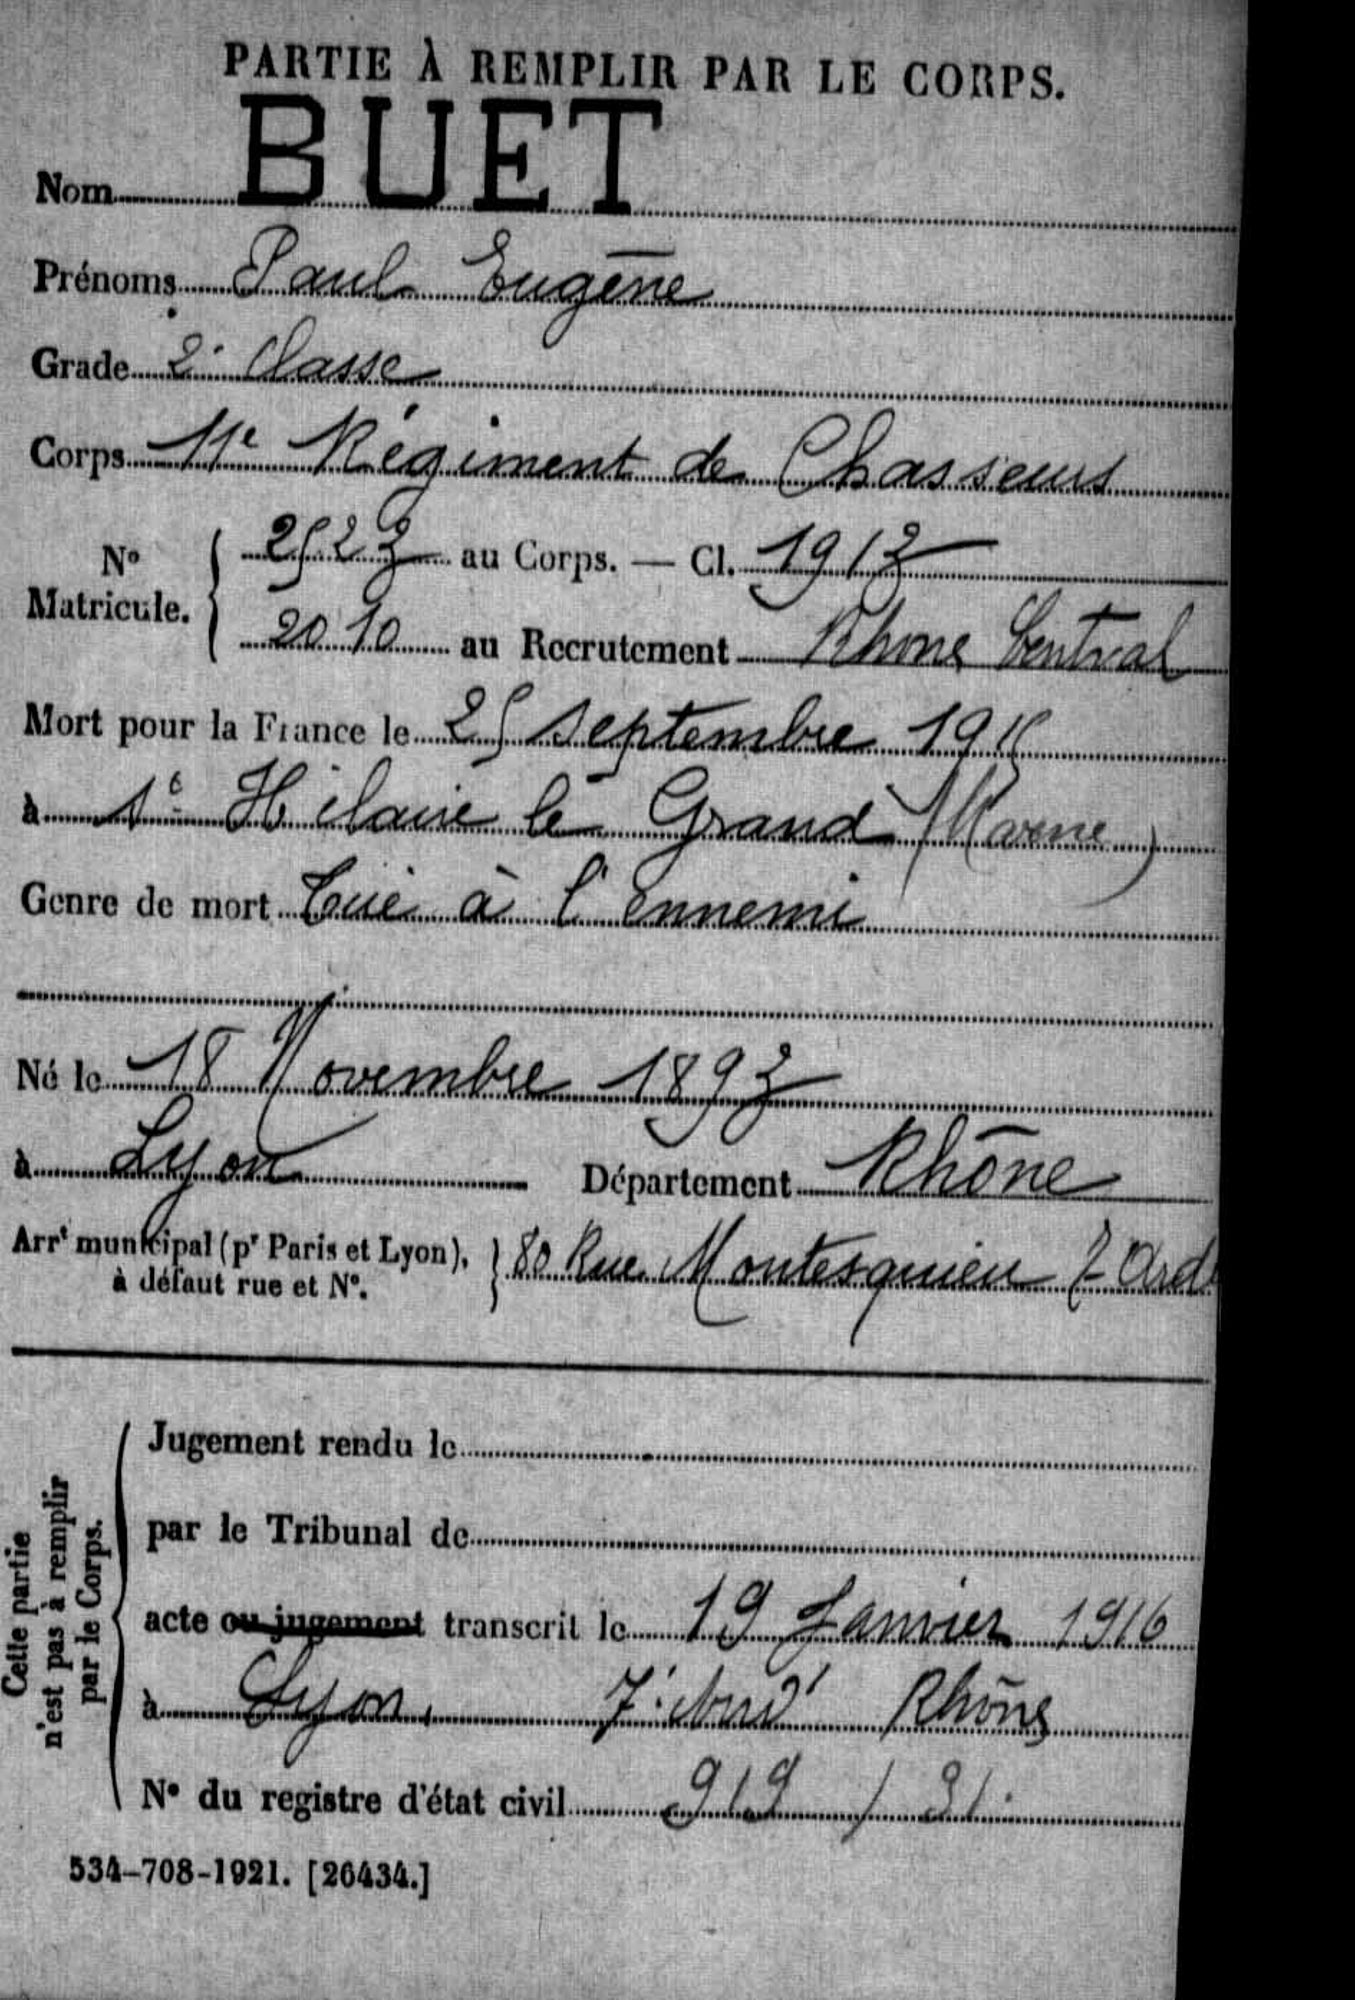 PARTIE À REMPLIR PAR LE CORPS.
Nom BUET
Prénoms Paul Eugène
Grade 2e Classe
Corps 11e Régiment de Chasseurs
No Matricule. { 2523 au Corps. — Cl. 1913
2010 au Recrutement Rhône Central
Mort pour la France le 25 septembre 1915
à St Hilaire le Grand (Marne)
Genre de mort Tué à l'ennemi
Né le 18 Novembre 1893
à Lyon Département Rhône
Arrt municipal (pr Paris et Lyon), à défaut rue et No. } 80 Rue Montesquieu 7 Ard
Cette partie n'est pas à remplir par le Corps.
Jugement rendu le
par le Tribunal de
acte ou jugement transcrit le 19 Janvier 1916
à Lyon, 7e Arrd Rhône
No du registre d'état civil 919 / 31.
534-708-1921. [26434.]